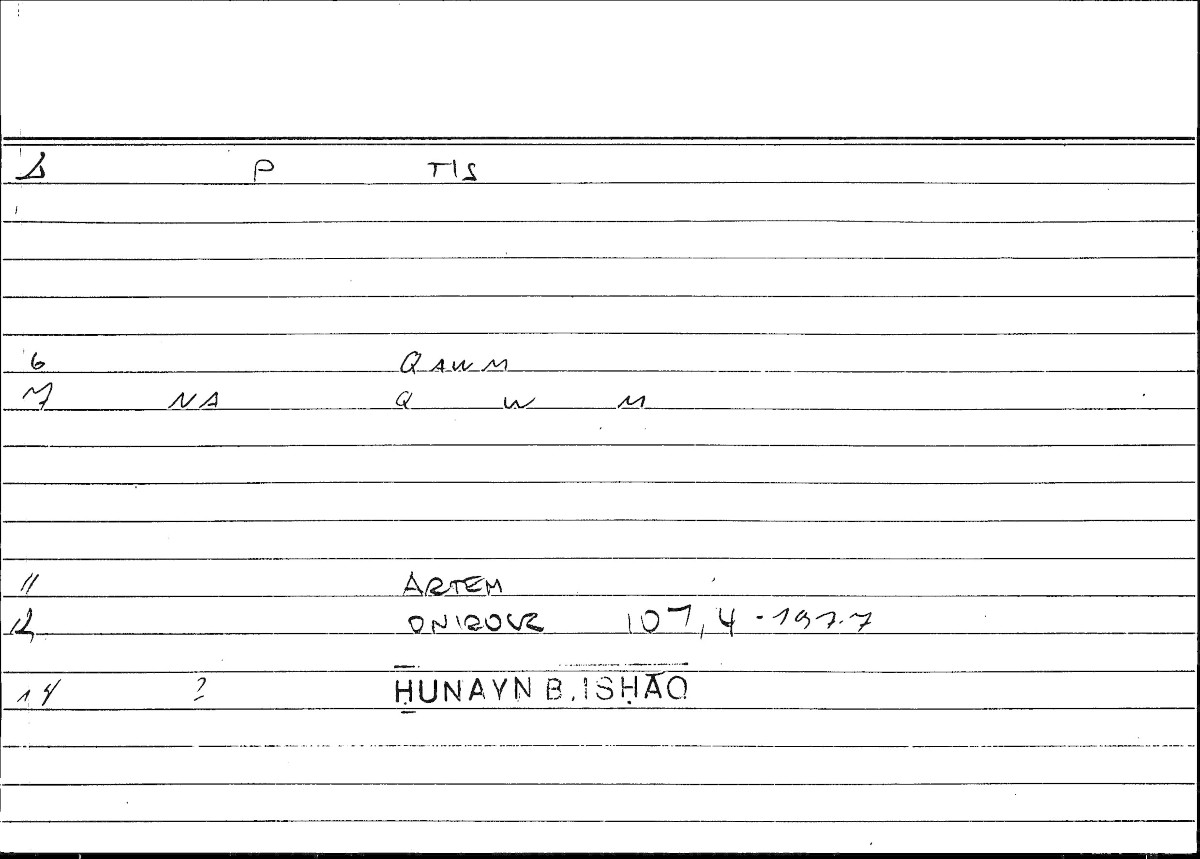 1 P TIS
6 QAWM
7 NA Q W M
11 ARTEM
12 ONIROCR 107,4-197.7
14 ? ḤUNAYN B. ISḤĀQ